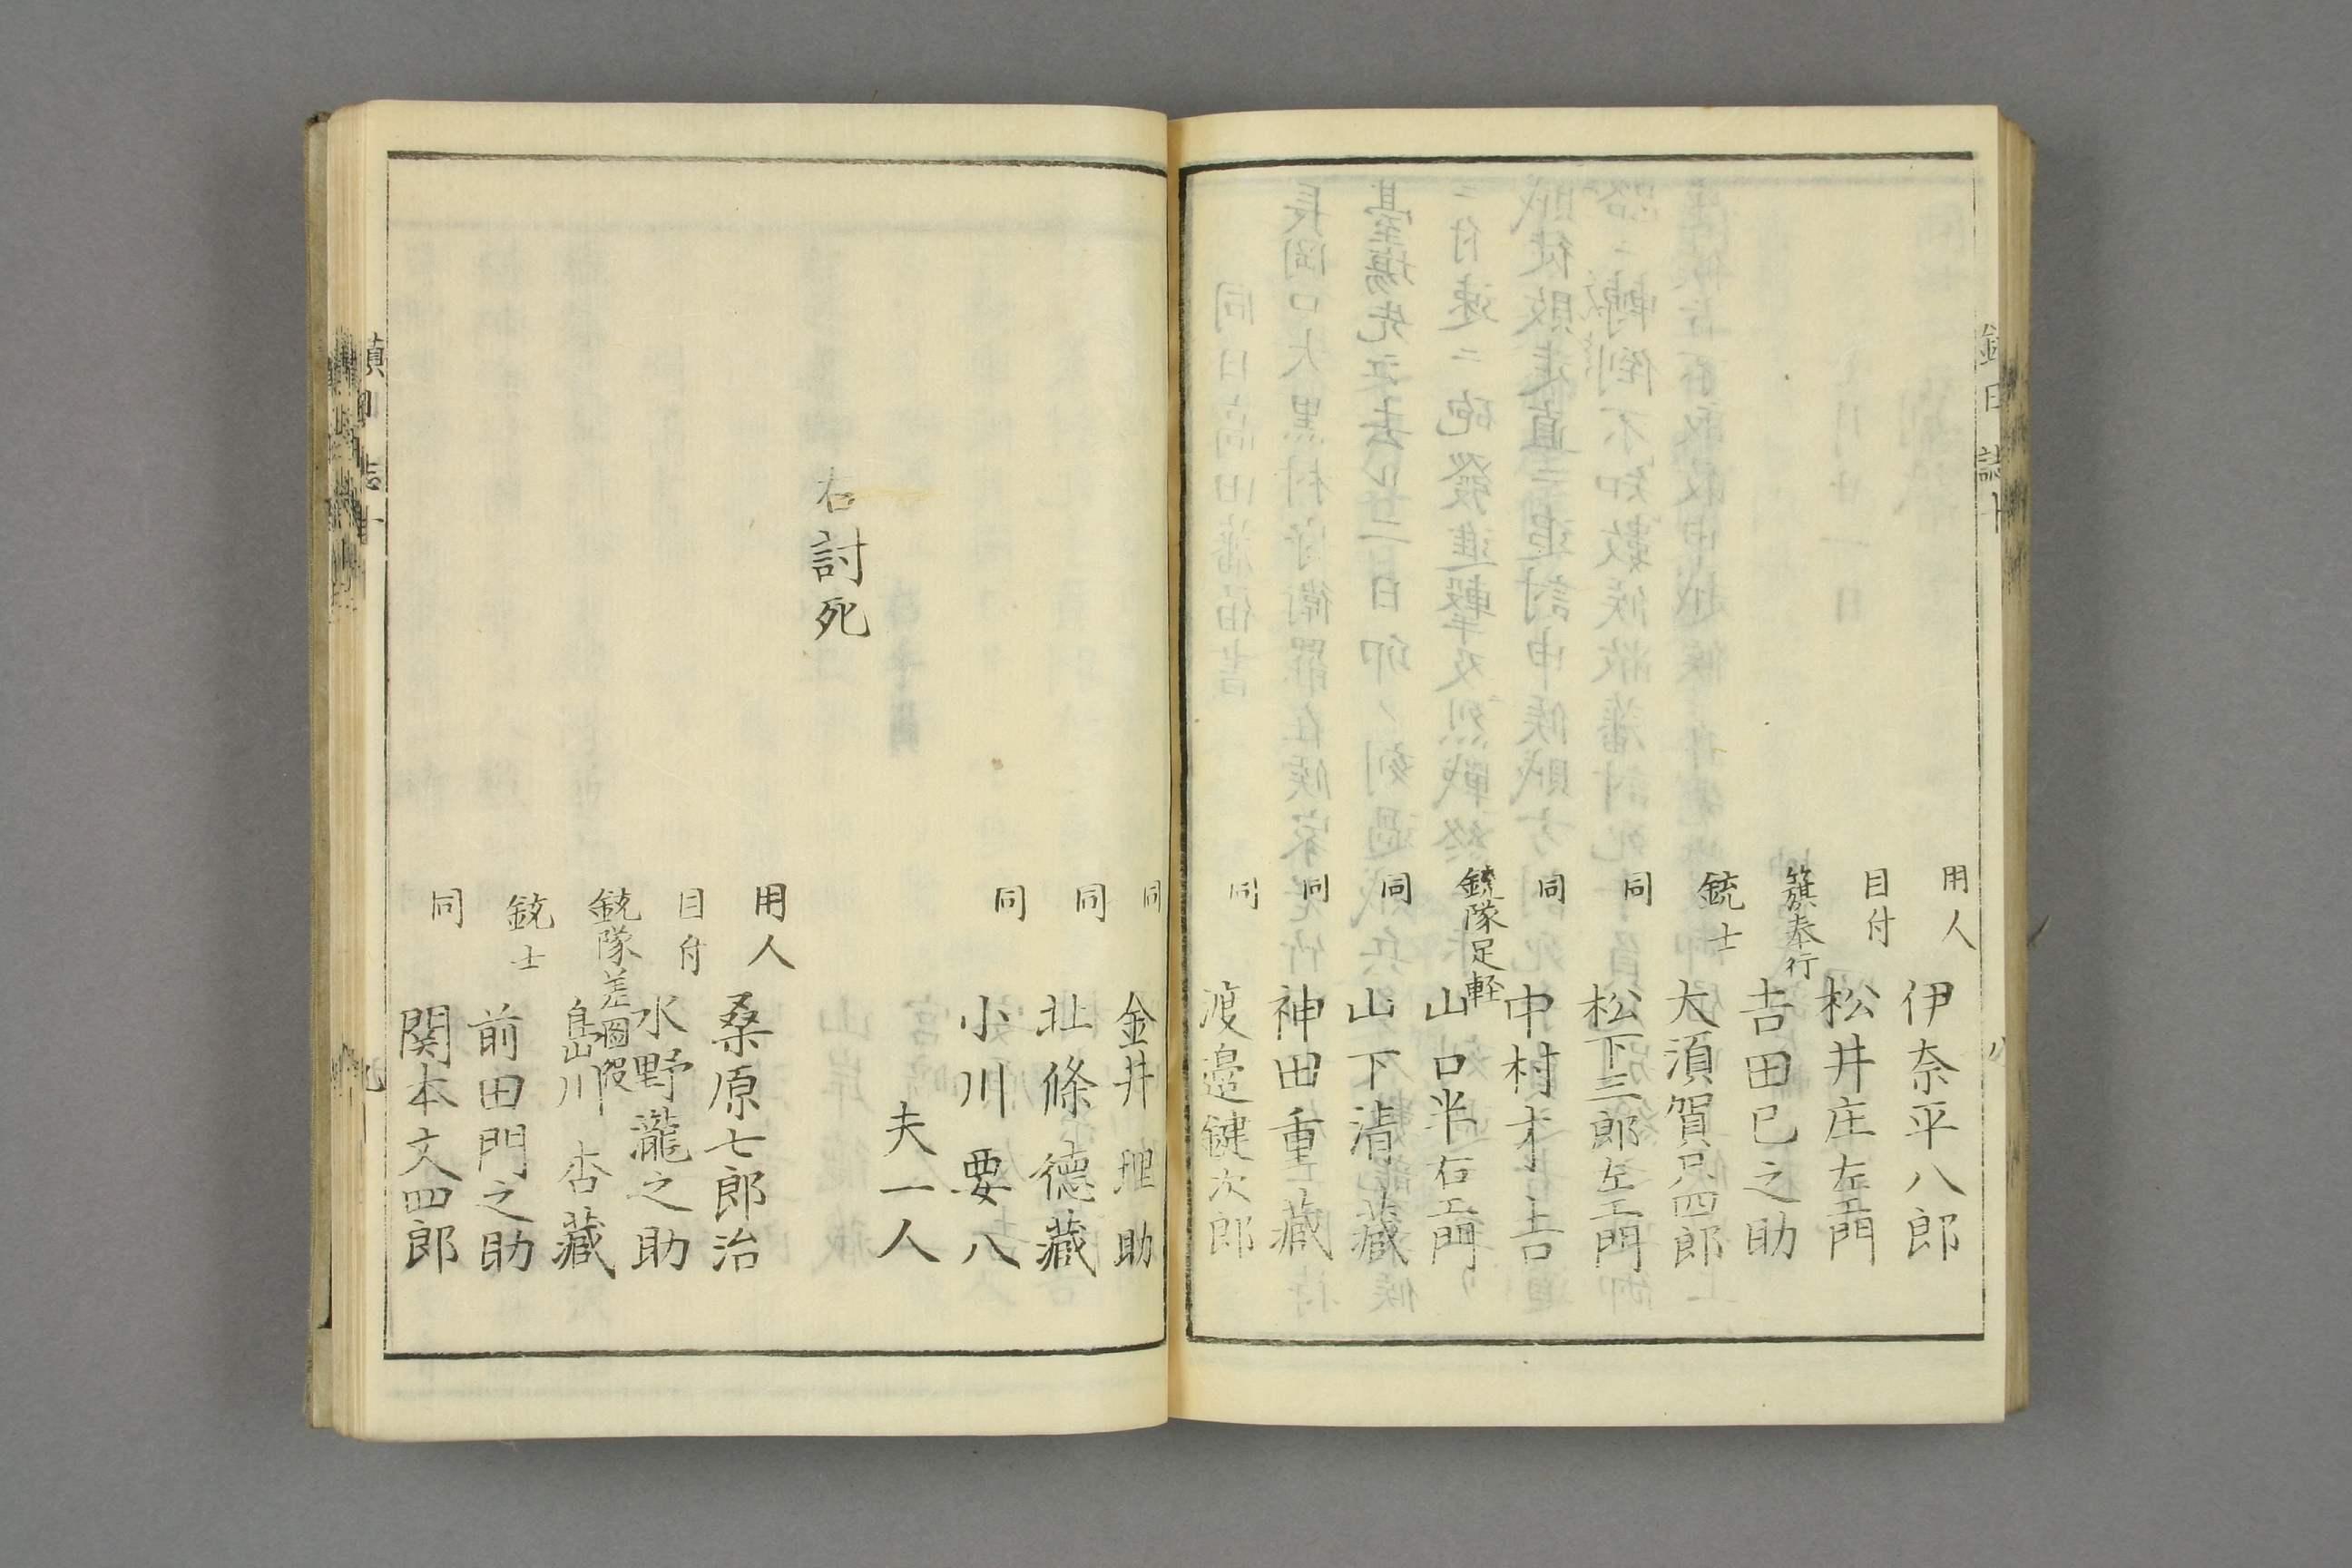 用人 伊奈平八郎
目付 松井庄左エ門
籏奉行 吉田巳之助
銃士 大須賀只四郎
同 松下三郎左エ門
同 中村才吉
銃隊足軽 山口半右エ門
同 山下清藏
同 神田重藏
同 渡邉鍵次郎
同 金井理助
同 北條德藏
同 小川要八
夫一人
右討死
用人 桑原七郎治
目付 水野瀧之助
銃隊差圖役 島川杏藏
銃士 前田門之助
同 関本文四郎